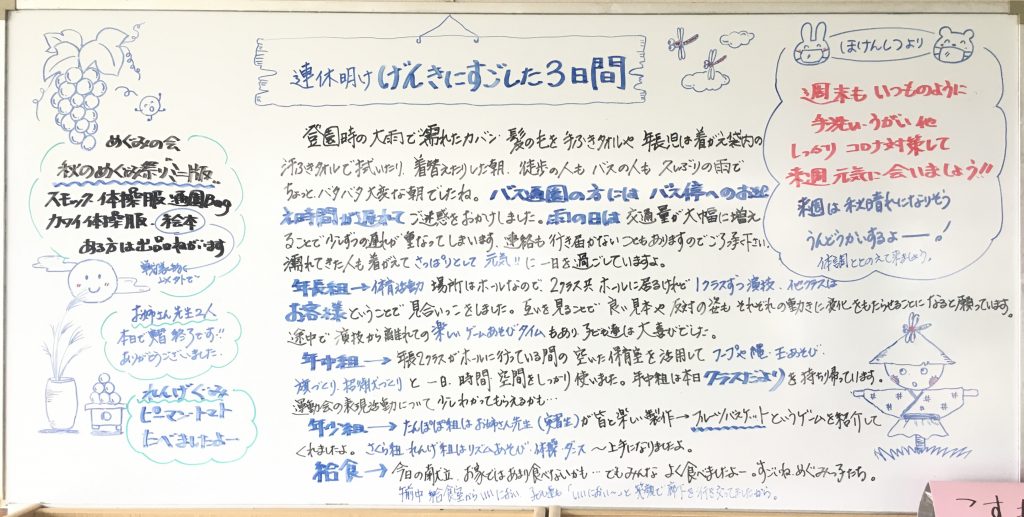 連休明け げんきにすごした3日間
めぐみの会
秋のめぐみ祭りミニ版
スモック 体操服 通園Bag
カタイ体操服 絵本
ある方は出品ねがいます
お姉さん先生2人
本日で実習終了です!!
ありがとうございました。
れんげぐみ
ピーマン・トマト
たべましたよー
登園時の大雨で濡れたカバン・髪の毛を手ふきタオルや 年長児は着がえ袋内の
汗ふきタオルで拭いたり、着替えたりした朝、徒歩の人も バスの人も 久しぶりの雨で
ちょっとバタバタ大変な朝でしたね。バス通園の方には バス停へのお迎
え時間が遅れて ご迷惑をおかけしました。雨の日は 交通量が大幅に増え
ることで少しずつの遅れが重なってしまいます。連絡も行き届かないこともありますのでご了承下さい。
濡れてきた人も着がえて さっぱりとして 元気!! に一日を過ごしていますよ。
年長組→体育活動 場所はホールなので、2クラス共 ホールに居るけれど 1クラスずつ演技、他クラスは
お客様ということで見合いっこをしました。互いを見ることで 良い見本や 反対の姿も それぞれの動きに変化をもたらせることになると願っています。
途中で 演技から離れての楽しいゲームあそびタイムもあり 子ども達は大喜びでした。
年中組→年長2クラスがホールに行っている間の 空いた保育室を活用して フープや縄・玉あそび・
旗づくり、招待状づくり と 一日、時間 空間をしっかり使いました。年中組は本日クラスだよりを持ち帰っています。
運動会の表現活動について 少しわかってもらえるかも…
年少組→たんぽぽ組はお姉さん先生(実習生)が皆と楽しい製作→フルーツバスケットというゲームを紹介して
くれました。さくら組 れんげ組はリズムあそび・体操・ダンス 〜上手になりましたよ。
給食→今日の献立、お家ではあまり食べないかも… でもみんな よく食べましたよー。すごいね、めぐみっ子たち。
午前中 給食室からいいにおい、子ども達も「いいにおい〜」と 笑顔で 廊下を行き交ってましたから。
ほけんしつより
週末も いつものように
手洗い・うがい 他
しっかり コロナ対策して
来週 元気に会いましょう!!
来週は 秋晴れになりそう
うんどうかいするよー!
体調ととのえて来ましょう。